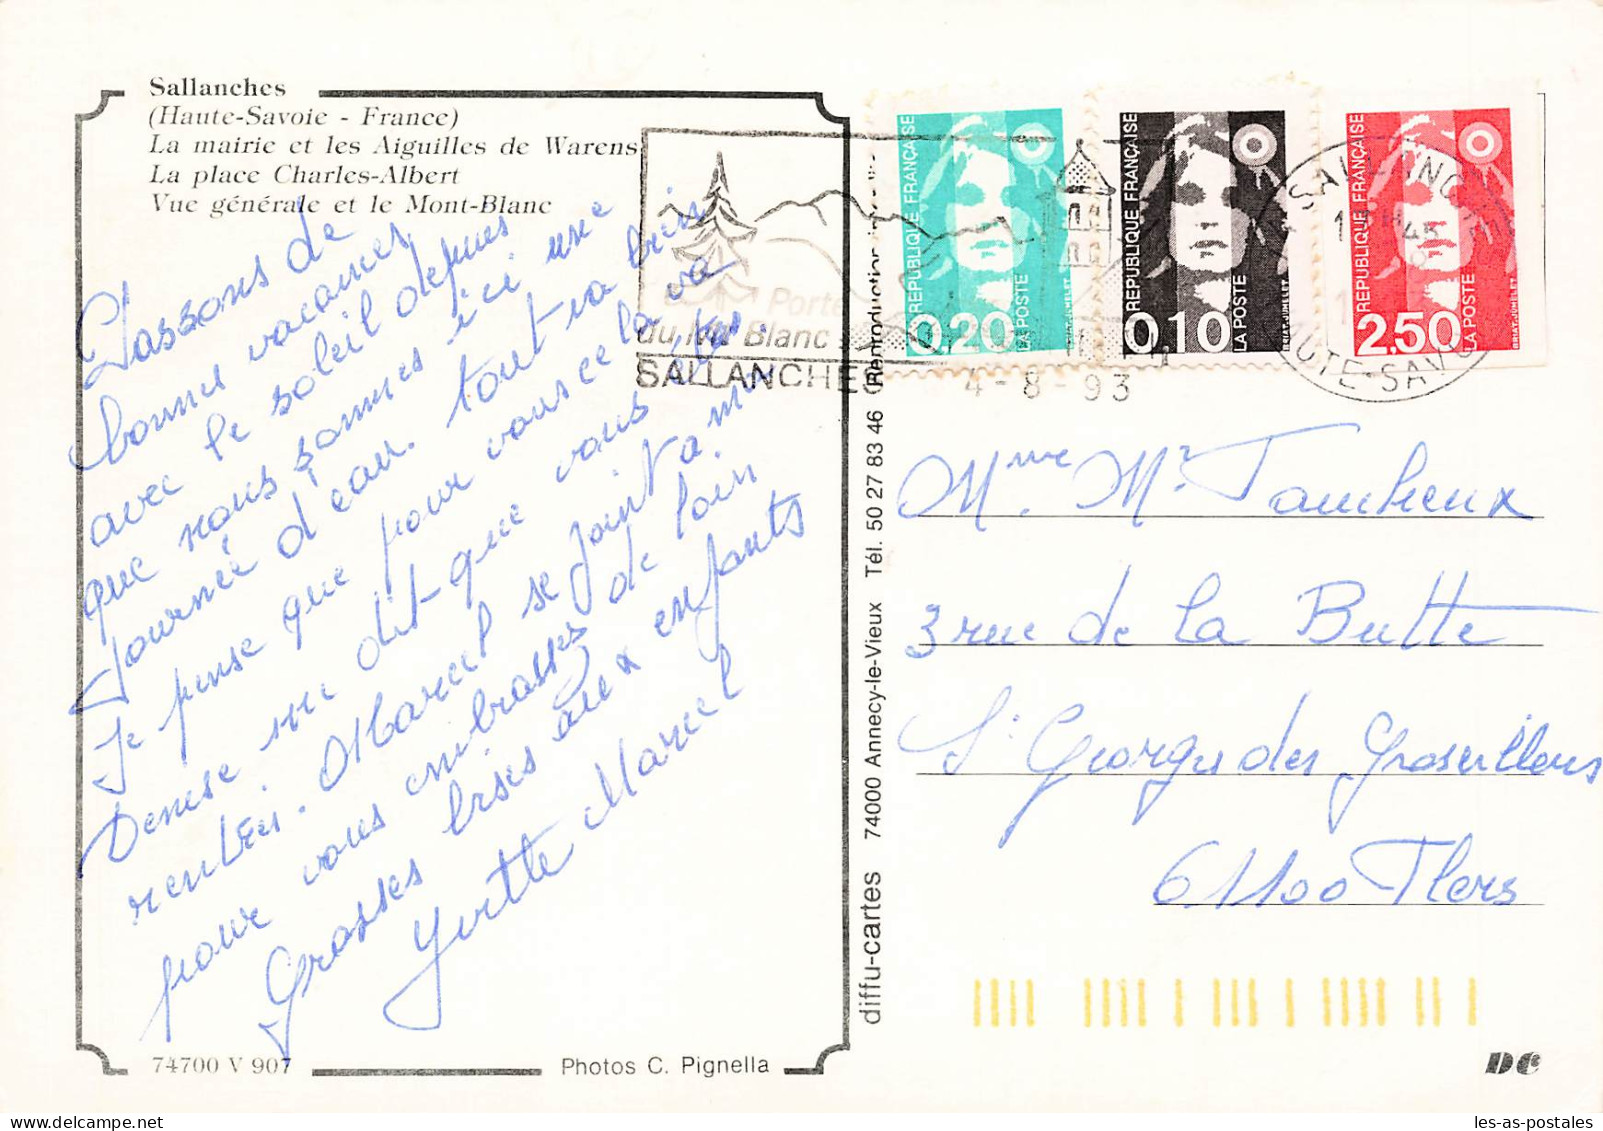 Sallanches
(Haute-Savoie - France)
La mairie et les Aiguilles de Warens
La place Charles-Albert
Vue générale et le Mont-Blanc
Passons de
bonnes vacances
avec le soleil depuis
que nous sommes ici une
Journée d'eau. tout va bien
Je pense que pour vous cela va
Denise me dit que vous
rentrés. Marcel se joint a moi
pour vous embrasser de loin
Grosses bises aux enfants
Yvette Marcel
74700 V 907
Photos C. Pignella
diffu-cartes 74000 Annecy-le-Vieux Tél. 50 27 83 46 (Reproduction
Porte
du Mt Blanc
SALLANCHES
4-8-93
RÉPUBLIQUE FRANÇAISE
0,20
LA POSTE
RÉPUBLIQUE FRANÇAISE
0,10
LA POSTE
BRIAT.JUMELET
RÉPUBLIQUE FRANÇAISE
2,50
LA POSTE
BRIAT.JUMELET
SALLANCHES
HAUTE-SAVOIE
Mme Mr
3 rue de la Butte
St Georges des Groseillers
61100 Flers
DC
les-as-postales